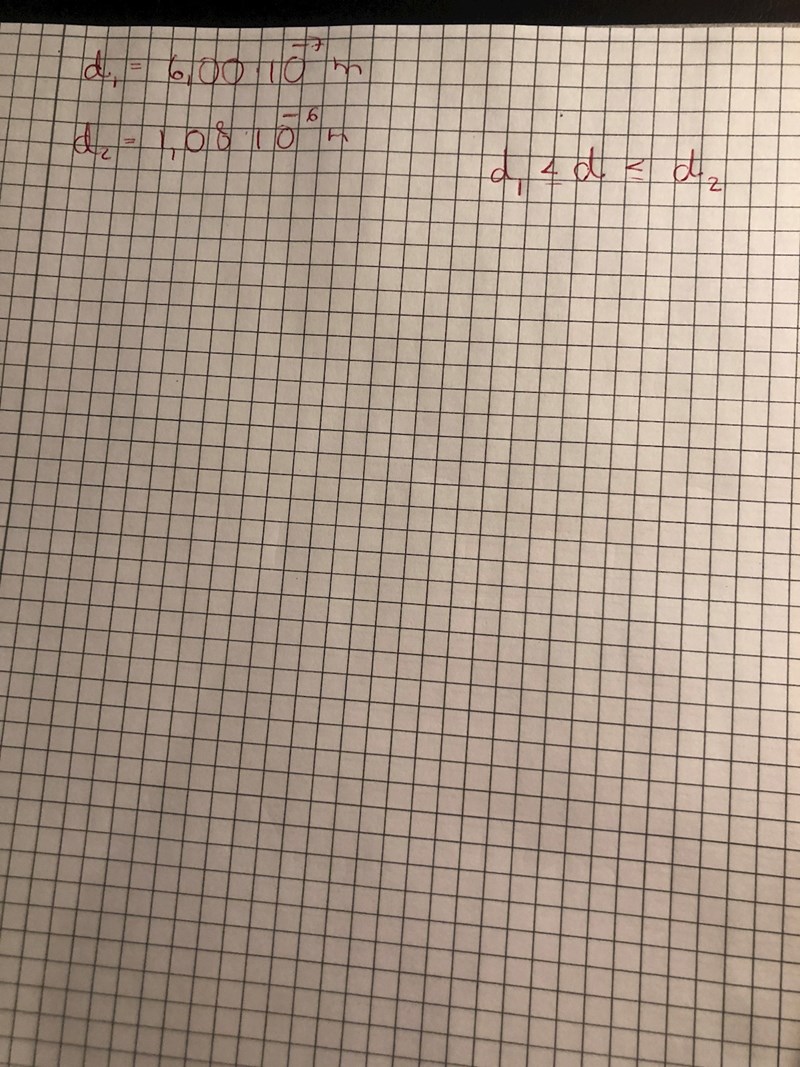 d₁ = 6,00 10⁻⁷ m
d₂ = 1,08 10⁻⁶ m
d₁ ≤ d ≤ d₂